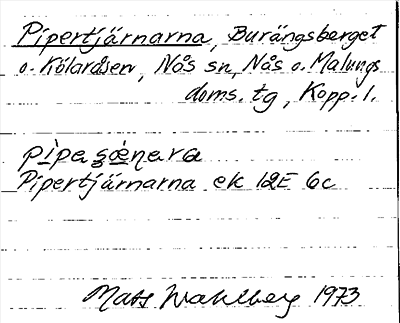 Pipertjärnarna, Burängsberget
o. Kölaråsen, Nås sn, Nås o. Malungs
doms. tg, Kopp. l.
pìpaşǿ̀ṇara
Pipertjärnarna ek 12E 6c
Mats Wahlberg 1973